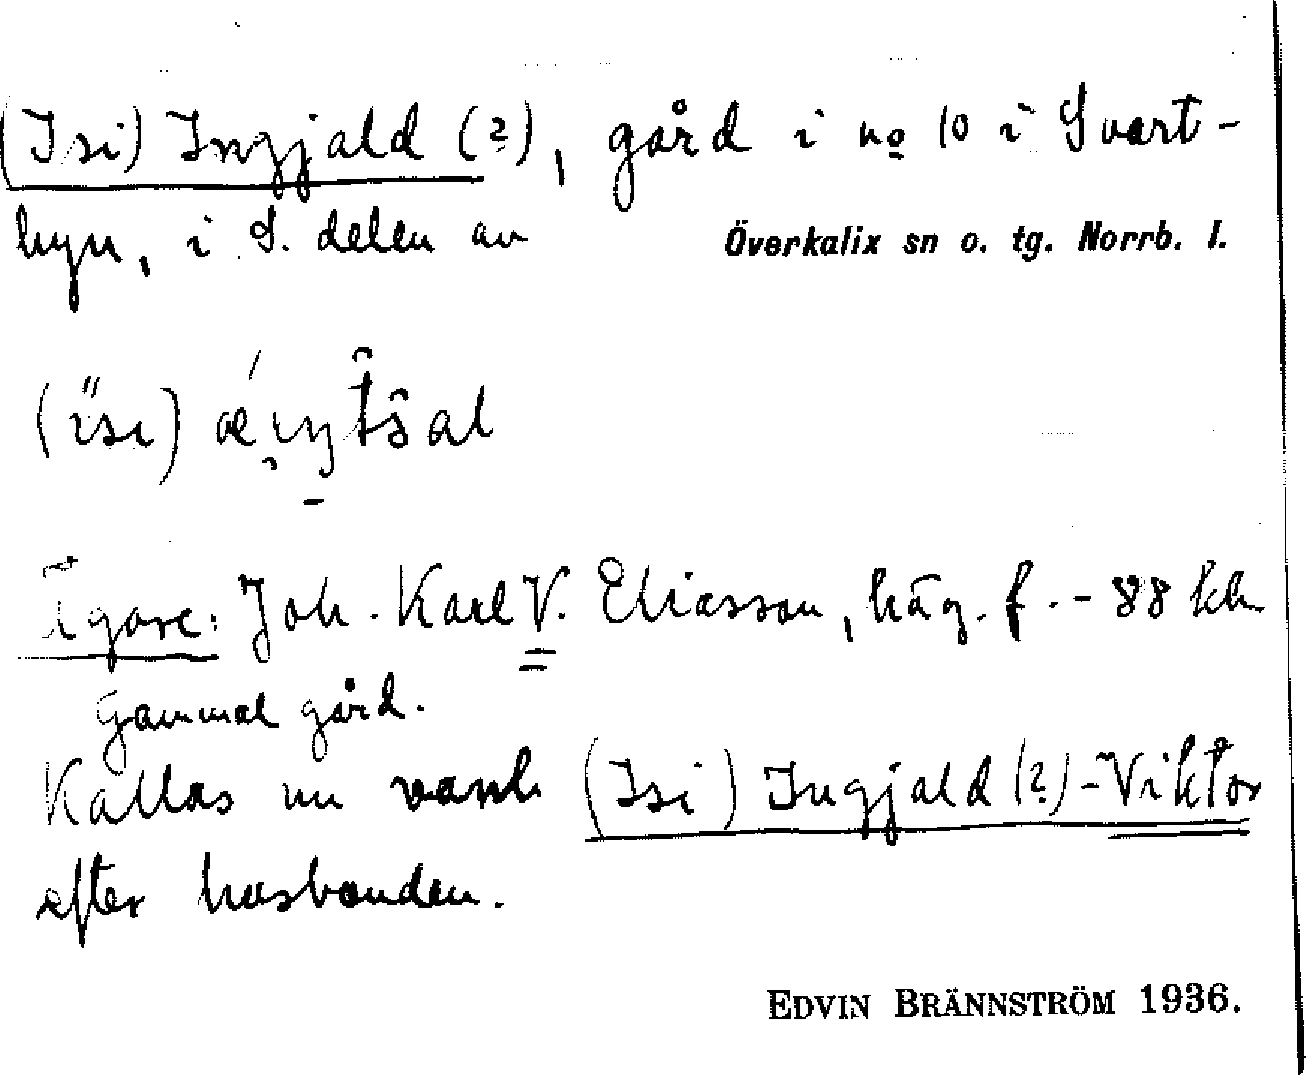 (Isi) Ingjald (?), gård i no 10 i Svart-
byn, i S. delen av
Överkalix sn o. tg. Norrb. l.
Ägare: Joh. Karl V. Eliasson, häg. f. -88 kln
Gammal gård.
Kallas nu vanl. (Isi) Ingjald (?)-Viktor
efter husbonden.
EDVIN BRÄNNSTRÖM 1936.